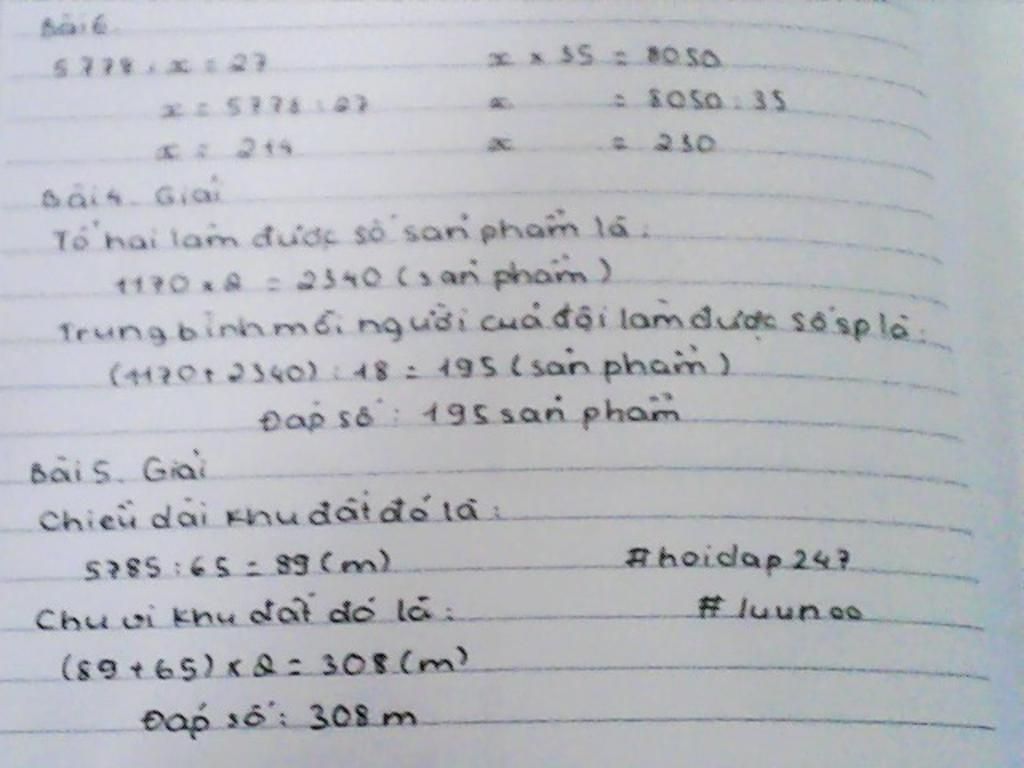 Bài 6
5778 : x = 27 x × 35 = 8050
x = 5778 : 27 x = 8050 : 35
x = 214 x = 230
Bài 4. Giải
Tổ hai làm được số sản phẩm là:
1170 x 2 = 2340 (sản phẩm)
Trung bình mỗi người của đội làm được số sp là:
(1170 + 2340) : 18 = 195 (sản phẩm)
Đáp số : 195 sản phẩm
Bài 5. Giải
Chiều dài khu đất đó là :
5785 : 65 = 89 (m) #hoidap247
Chu vi khu đất đó là : #luunoo
(89 + 65) x 2 = 308 (m)
Đáp số : 308 m